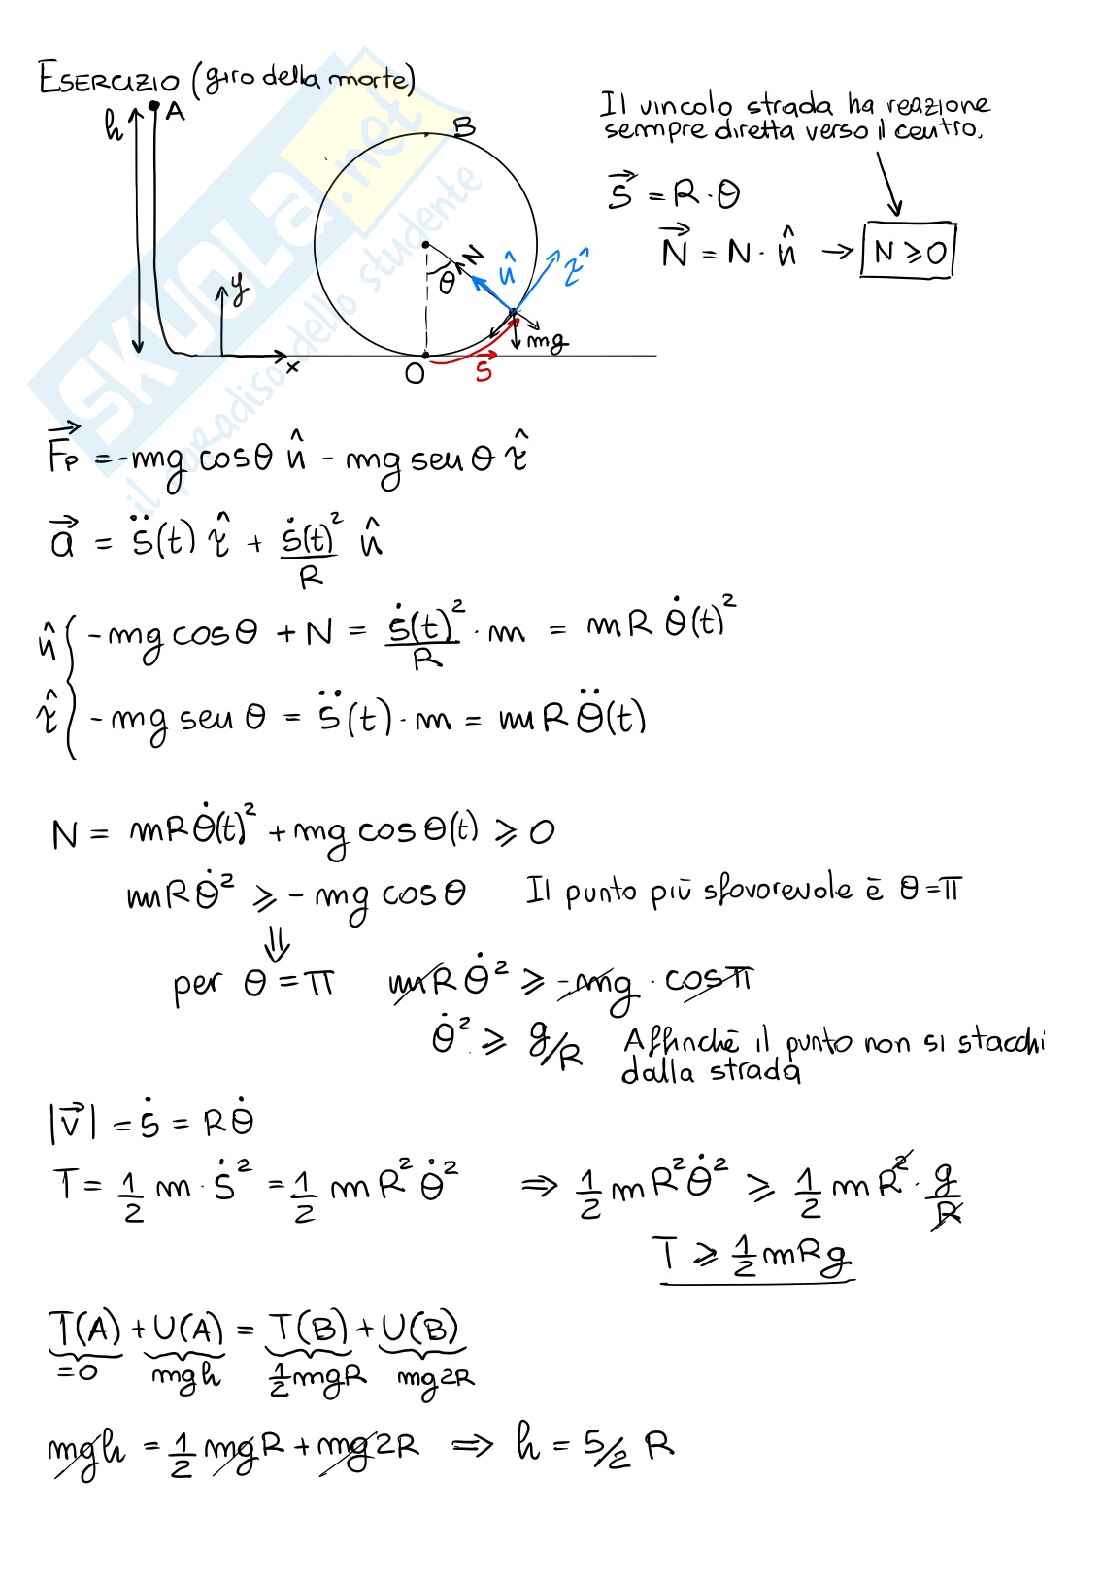 ESERCIZIO (giro della morte)
A
h
B
Il vincolo strada ha reazione
sempre diretta verso il centro.
s⃗ = R·θ
N⃗ = N·n̂ → N ⩾ 0
y
x
θ
N
n̂
τ̂
mg
s⃗
O
SKUOLA.net
il paradiso dello studente
F⃗p = -mg cosθ n̂ - mg senθ τ̂
a⃗ = s̈(t) τ̂ + ṡ(t)²/R n̂
n̂ { -mg cosθ + N = ṡ(t)²/R · m = mR θ̇(t)²
τ̂ { -mg sen θ = s̈(t)·m = mR θ̈(t)
N = mRθ̇(t)² + mg cosθ(t) ⩾ 0
mRθ̇² ⩾ -mg cosθ Il punto più sfavorevole è θ=π
⇓
per θ = π mRθ̇² ⩾ -mg · cosπ
θ̇² ⩾ g/R Affinchè il punto non si stacchi
dalla strada
|v⃗| = ṡ = Rθ̇
T = 1/2 m·ṡ² = 1/2 mR²θ̇² ⇒ 1/2 mR²θ̇² ⩾ 1/2 mR²·g/R
T ⩾ 1/2 mRg
T(A) + U(A) = T(B) + U(B)
=0 mgh 1/2 mgR mg2R
mgh = 1/2 mgR + mg2R ⇒ h = 5/2 R